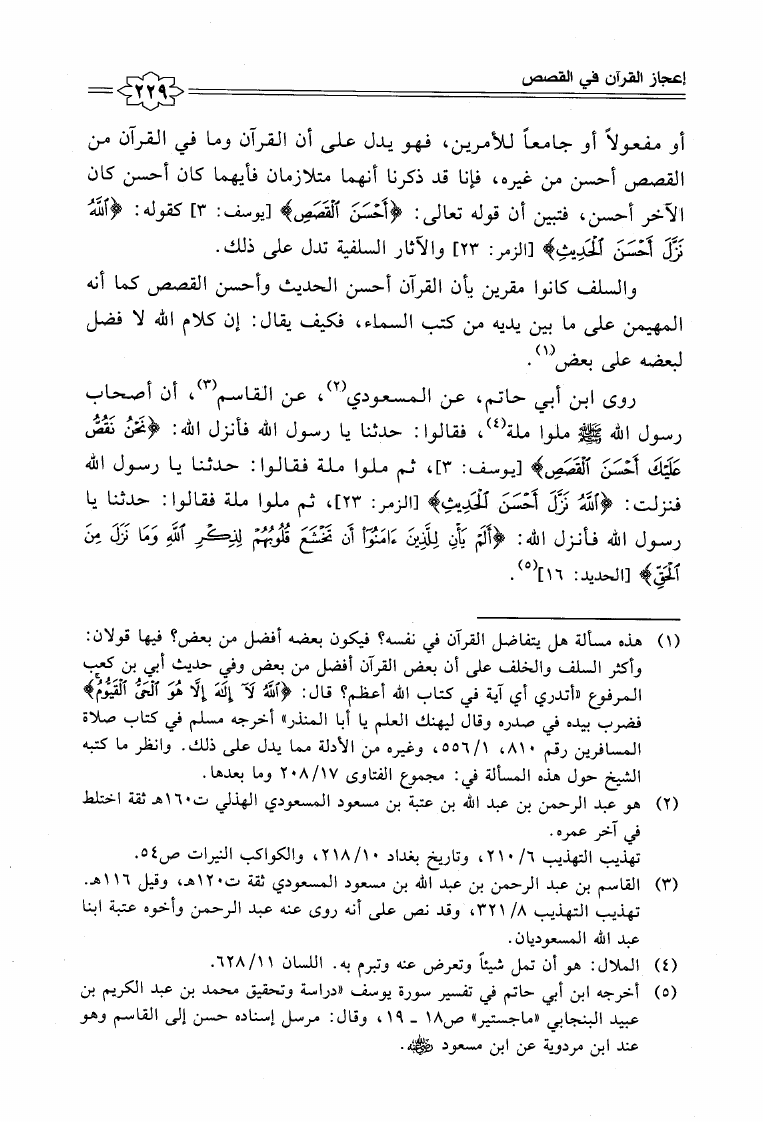 إعجاز القرآن في القصص
٢٢٩
أو مفعولاً أو جامعاً للأمرين، فهو يدل على أن القرآن وما في القرآن من
القصص أحسن من غيره، فإنا قد ذكرنا أنهما متلازمان فأيهما كان أحسن كان
الآخر أحسن، فتبين أن قوله تعالى: ﴿أَحْسَنَ ٱلْقَصَصِ﴾ [يوسف: ٣] كقوله: ﴿ٱللَّهُ
نَزَّلَ أَحْسَنَ ٱلْحَدِيثِ﴾ [الزمر: ٢٣] والآثار السلفية تدل على ذلك.
والسلف كانوا مقرين بأن القرآن أحسن الحديث وأحسن القصص كما أنه
المهيمن على ما بين يديه من كتب السماء، فكيف يقال: إن كلام الله لا فضل
لبعضه على بعض(١).
روى ابن أبي حاتم، عن المسعودي(٢)، عن القاسم(٣)، أن أصحاب
رسول الله ﷺ ملوا ملة(٤)، فقالوا: حدثنا يا رسول الله فأنزل الله: ﴿نَحْنُ نَقُصُّ
عَلَيْكَ أَحْسَنَ ٱلْقَصَصِ﴾ [يوسف: ٣]، ثم ملوا ملة فقالوا: حدثنا يا رسول الله
فنزلت: ﴿ٱللَّهُ نَزَّلَ أَحْسَنَ ٱلْحَدِيثِ﴾ [الزمر: ٢٣]، ثم ملوا ملة فقالوا: حدثنا يا
رسول الله فأنزل الله: ﴿أَلَمْ يَأْنِ لِلَّذِينَ ءَامَنُوٓا۟ أَن تَخْشَعَ قُلُوبُهُمْ لِذِكْرِ ٱللَّهِ وَمَا نَزَلَ مِنَ
ٱلْحَقِّ﴾ [الحديد: ١٦](٥).
(١) هذه مسألة هل يتفاضل القرآن في نفسه؟ فيكون بعضه أفضل من بعض؟ فيها قولان:
وأكثر السلف والخلف على أن بعض القرآن أفضل من بعض وفي حديث أبي بن كعب
المرفوع «أتدري أي آية في كتاب الله أعظم؟ قال: ﴿ٱللَّهُ لَآ إِلَٰهَ إِلَّا هُوَ ٱلْحَىُّ ٱلْقَيُّومُ﴾
فضرب بيده في صدره وقال ليهنك العلم يا أبا المنذر» أخرجه مسلم في كتاب صلاة
المسافرين رقم ٨١٠، ٥٥٦/١، وغيره من الأدلة مما يدل على ذلك. وانظر ما كتبه
الشيخ حول هذه المسألة في: مجموع الفتاوى ٢٠٨/١٧ وما بعدها.
(٢) هو عبد الرحمن بن عبد الله بن عتبة بن مسعود المسعودي الهذلي ت١٦٠هـ ثقة اختلط
في آخر عمره.
تهذيب التهذيب ٢١٠/٦، وتاريخ بغداد ٢١٨/١٠، والكواكب النيرات ص٥٤.
(٣) القاسم بن عبد الرحمن بن عبد الله بن مسعود المسعودي ثقة ت١٢٠هـ، وقيل ١١٦هـ.
تهذيب التهذيب ٣٢١/٨، وقد نص على أنه روى عنه عبد الرحمن وأخوه عتبة ابنا
عبد الله المسعوديان.
(٤) الملال: هو أن تمل شيئاً وتعرض عنه وتبرم به. اللسان ٦٢٨/١١.
(٥) أخرجه ابن أبي حاتم في تفسير سورة يوسف «دراسة وتحقيق محمد بن عبد الكريم بن
عبيد البنجابي «ماجستير» ص١٨ ـ ١٩، وقال: مرسل إسناده حسن إلى القاسم وهو
عند ابن مردوية عن ابن مسعود رضي الله عنه.